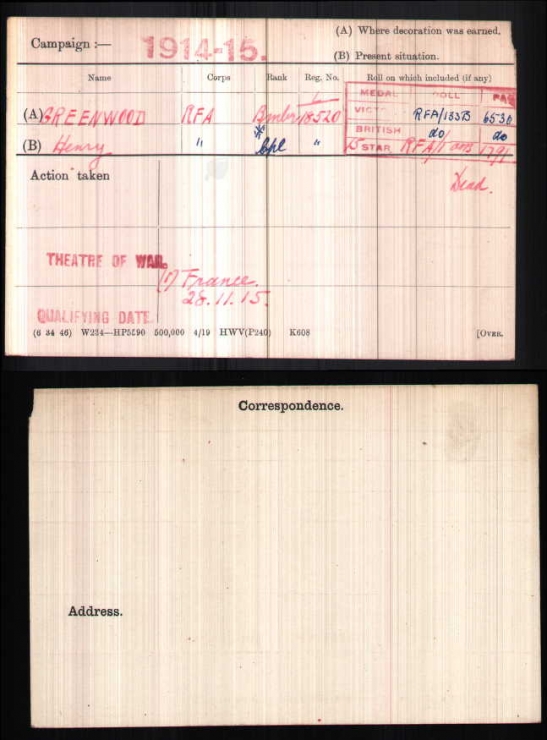 Campaign :— 1914-15.
(A) Where decoration was earned.
(B) Present situation.
Name Corps Rank Reg. No. Roll on which included (if any)
MEDAL ROLL PAG
(A) GREENWOOD RFA Bmbr 18520 VICT RFA/133B 6530
BRITISH do/ do
(B) Henry " * Cpl " 15 STAR RFA/1 1791
Action taken
Dead.
THEATRE OF WAR.
(1) France.
28.11.15.
QUALIFYING DATE.
(6 34 46) W234—HP5590 500,000 4/19 HWV(P240) K608 [OVER.
Correspondence.
Address.